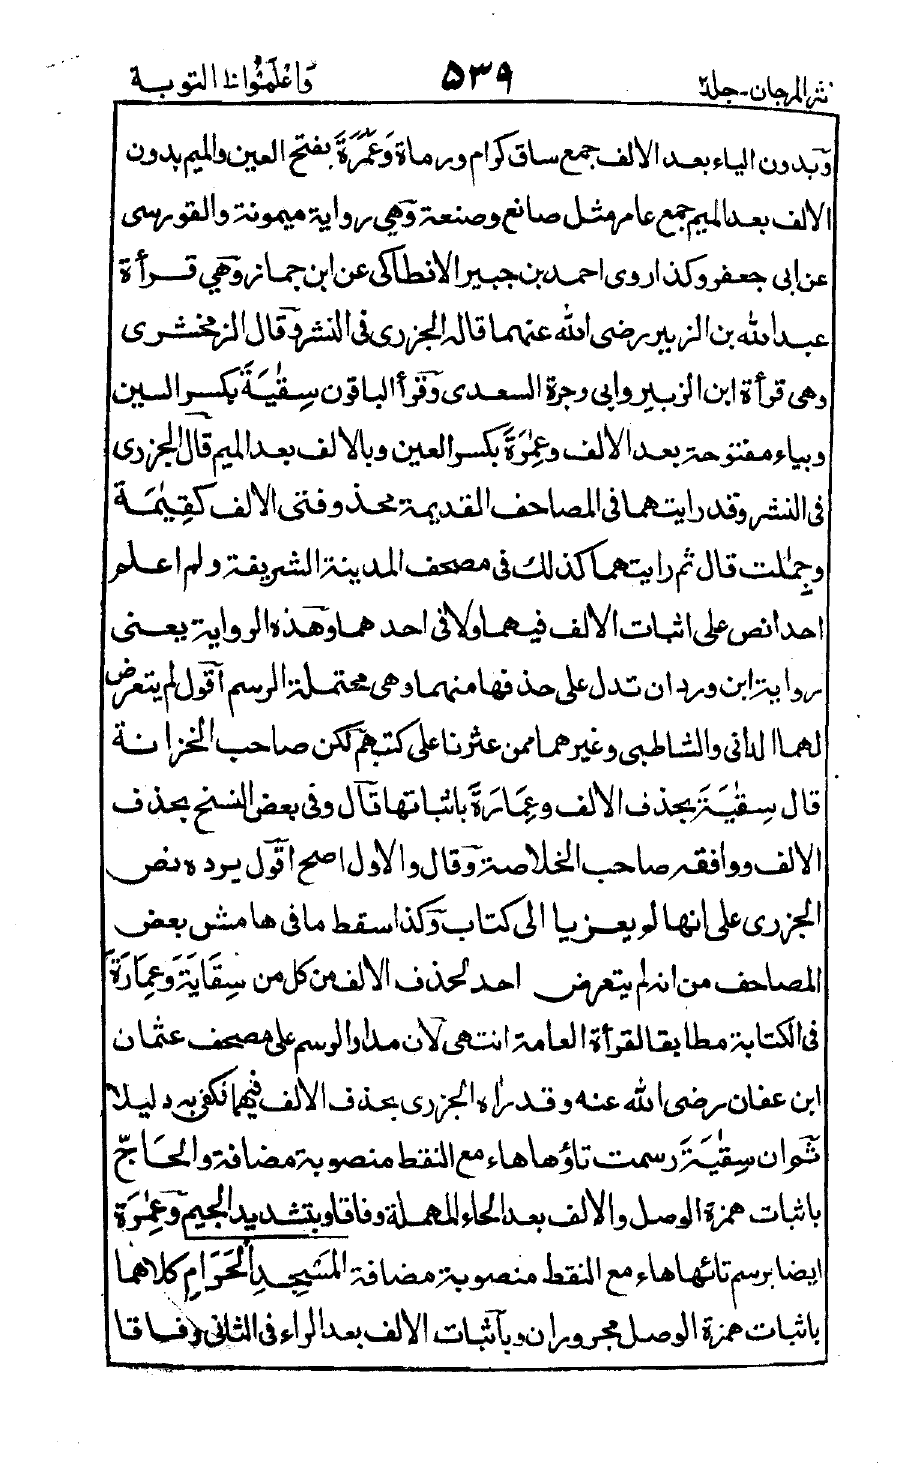 نثر المرجان - جلد ٢ ٥٣٩ وَاعْلَمُوا ١٠ التوبة
وبدون الياء بعد الالف جمع ساق كرام ورماة وَعَمَرَةَ بفتح العين والميم بدون
الالف بعد الميم جمع عامر مثل صانع وصنعة وهي رواية ميمونة والقورسى
عن ابى جعفر وكذا روى احمد بن جبير الانطاكى عن ابن جماز وهي قرأة
عبد الله بن الزبير رضى الله عنهما قاله الجزرى فى النشر وقال الزمخشرى
وهى قرأة ابن الزبير وابى وجرة السعدى وقرأ الباقون سِقٰيَةَ بكسر السين
وبياء مفتوحة بعد الالف وعِمٰرَةَ بكسر العين وبالالف بعد الميم قال الجزرى
فى النشر وقد رايتهما فى المصاحف القديمة محذوفتى الالف كقِيٰمَة
وجِمٰلت قال ثم رايتهما كذلك فى مصحف المدينة الشريفة ولم اعلم
احدا نص على اثبات الالف فيهما ولا فى احدهما وهذه الرواية يعنى
رواية ابن وردان تدل على حذفها منهما وهى محتملة الرسم اقول لم يتعرض
لهما الدانى والشاطبى وغيرهما ممن عثرنا على كتبهم لكن صاحب الخزانة
قال سِقٰيَةَ بحذف الالف وعِمَارَةَ باثباتها قال وفى بعض النسخ بحذف
الالف ووافقه صاحب الخلاصة وقال والاول اصح اقول يرده نص
الجزرى على انها لو يعزيا الى كتاب وكذا سقط ما فى هامش بعض
المصاحف من انه لم يتعرض احد لحذف الالف من كل من سِقَايَةَ وَعِمَارَةَ
فى الكتابة مطابقا لقرأة العامة انتهى لان مدار الرسم على مصحف عثمان
ابن عفان رضى الله عنه وقد رأه الجزرى بحذف الالف فيهما فكفى به دليلا
ثم ان سِقٰيَةَ رسمت تاؤها هاء مع النقط منصوبة مضافة والحَاجِّ
باثبات همزة الوصل والالف بعد الحاء المهملة وفاقا وبتشديد الجيم وَعِمٰرَةَ
ايضا برسم تائها هاء مع النقط منصوبة مضافة المَسْجِدِ الْحَرَامِ كلاهما
باثبات همزة الوصل مجروران وباثبات الالف بعد الراء فى الثانى وفاقا